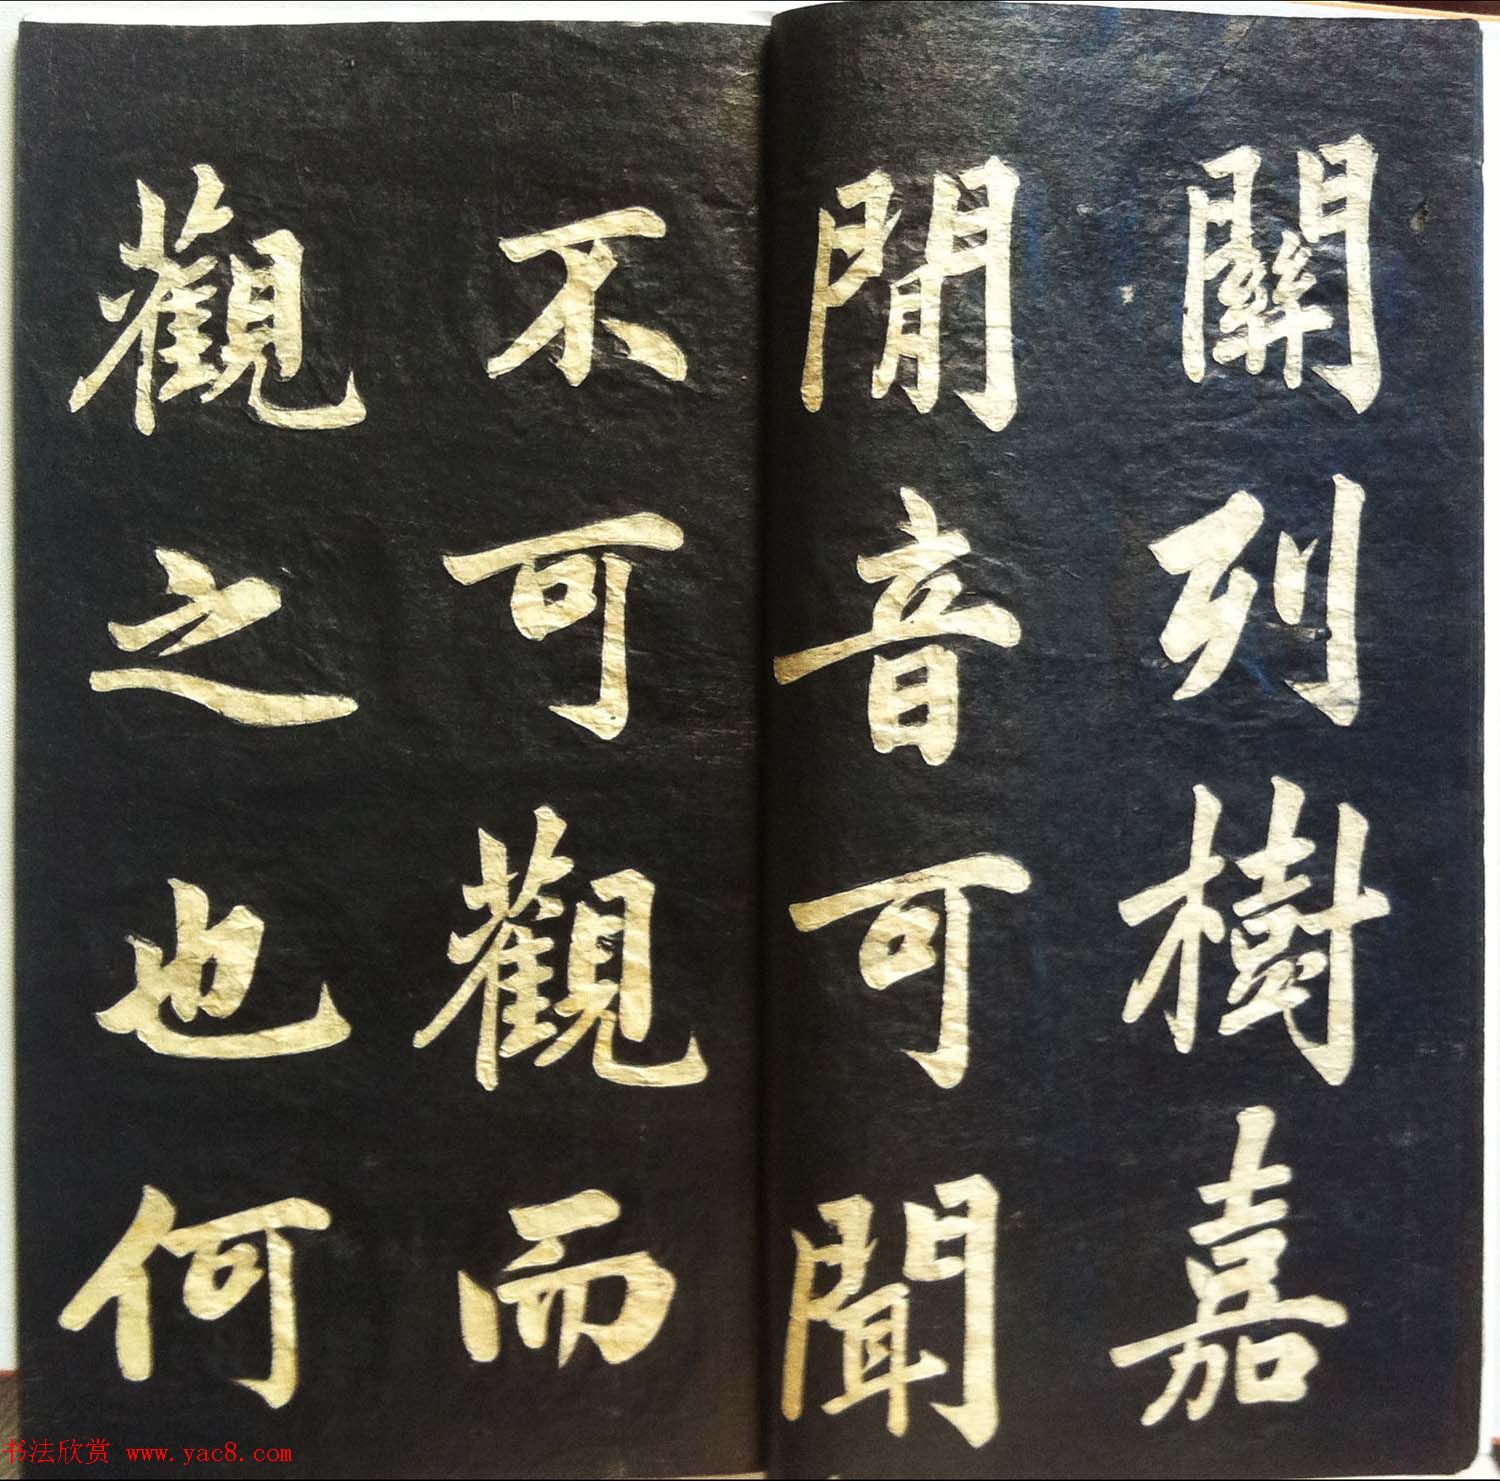 關列樹嘉
閒音可聞
不可觀而
觀之也何
书法欣赏 www.yac8.com